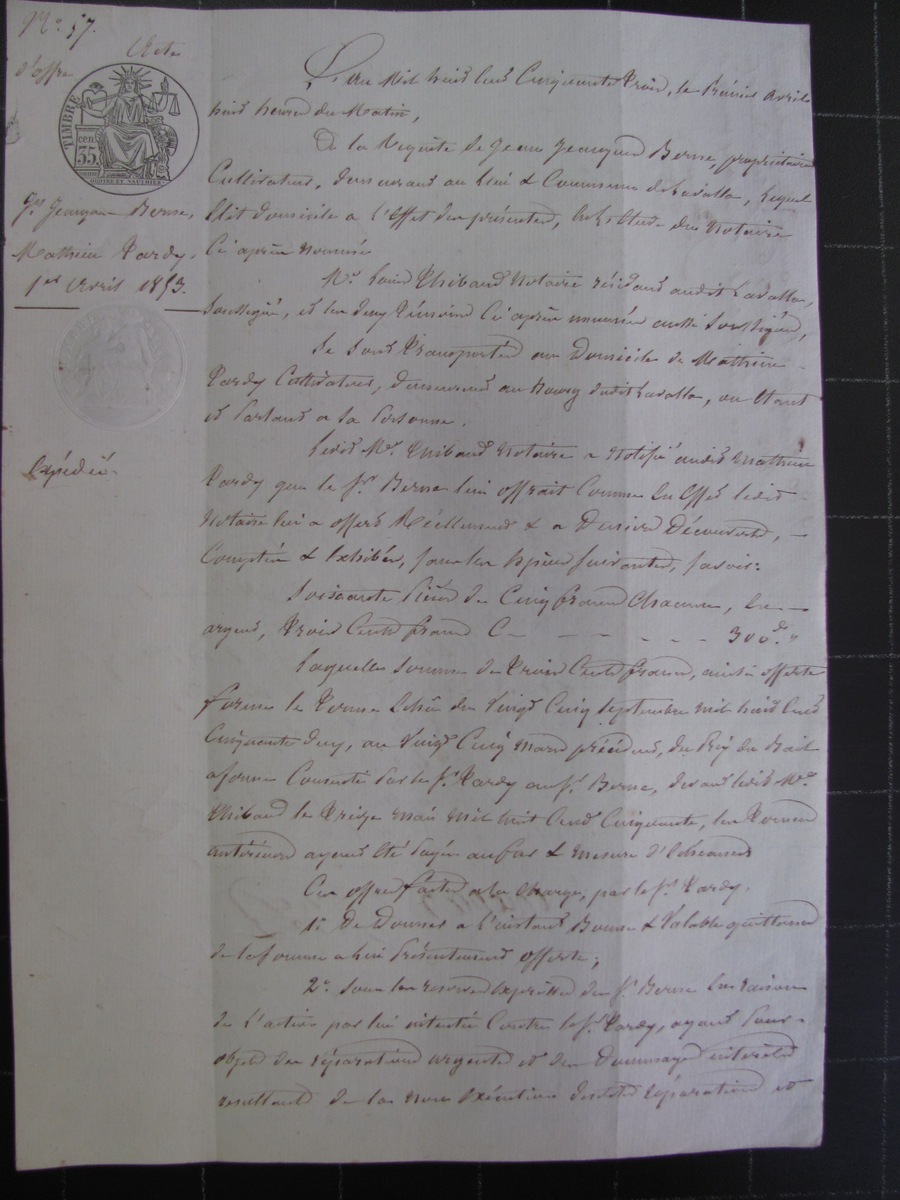 No. 57.
Acte
d'offre
TIMBRE
35 cen.
Jn Jacques Berne,
Mathieu Tardy.
1er Avril 1853.
Expédié.
L'an Mil huit Cent Cinquante Trois, le Premier Avril
huit heures du Matin,
De la Requête de Jean Jacques Berne, propriétaire
Cultivateur, demeurant au lieu & Commune de Lavalla, lequel
Elit domicile a l'Effet des présentes, En l'Etude du Notaire
Ci après nommé
Me Louis Thibaud Notaire résidant audit Lavalla,
Soussigné, et les deux Témoins Ci après nommés aussi Soussignés,
Se sont Transportés au Domicile de Mathieu
Tardy Cultivateur, demeurant au Bourg dudit Lavalla, ou Etant
et Parlant a sa Personne.
Ledit Me Thibaud Notaire a Notifié audit Mathieu
Tardy que le Sr Berne lui offrait Comme En Effet ledit
Notaire lui a offert Réellement & a Deniers Découverts,
Comptés & Exhibés, sous les Espèces suivantes, savoir:
Soixante Pièces de Cinq francs Chacune, En
argent, Trois Cents francs C - - - - - 300 "
Laquelle somme de Trois Cents francs, ainsi offerte
forme le Terme Echu du Vingt Cinq Septembre mil huit Cent
Cinquante Deux, au Vingt Cinq Mars précédent, du Prix du Bail
a ferme Consenti Par le Sr Tardy au Sr Berne, devant ledit Me
Thibaud le Treize Mai Mil huit Cent Cinquante, les Termes
antérieurs ayant Eté Payés au fur & mesure d'Echéances
Ces offres faites a la Charge, par le Sr Tardy.
1o De Donner a l'instant Bonne & Valable quittance
de la somme a lui Présentement offerte;
2o Sous les reserves Expresses du Sr Berne En raison
de l'action par lui intentée Contre le Sr Tardy, ayant Pour
objet des réparations urgentes et des Dommages intérêts
resultant de la non Exécution desdites réparations et